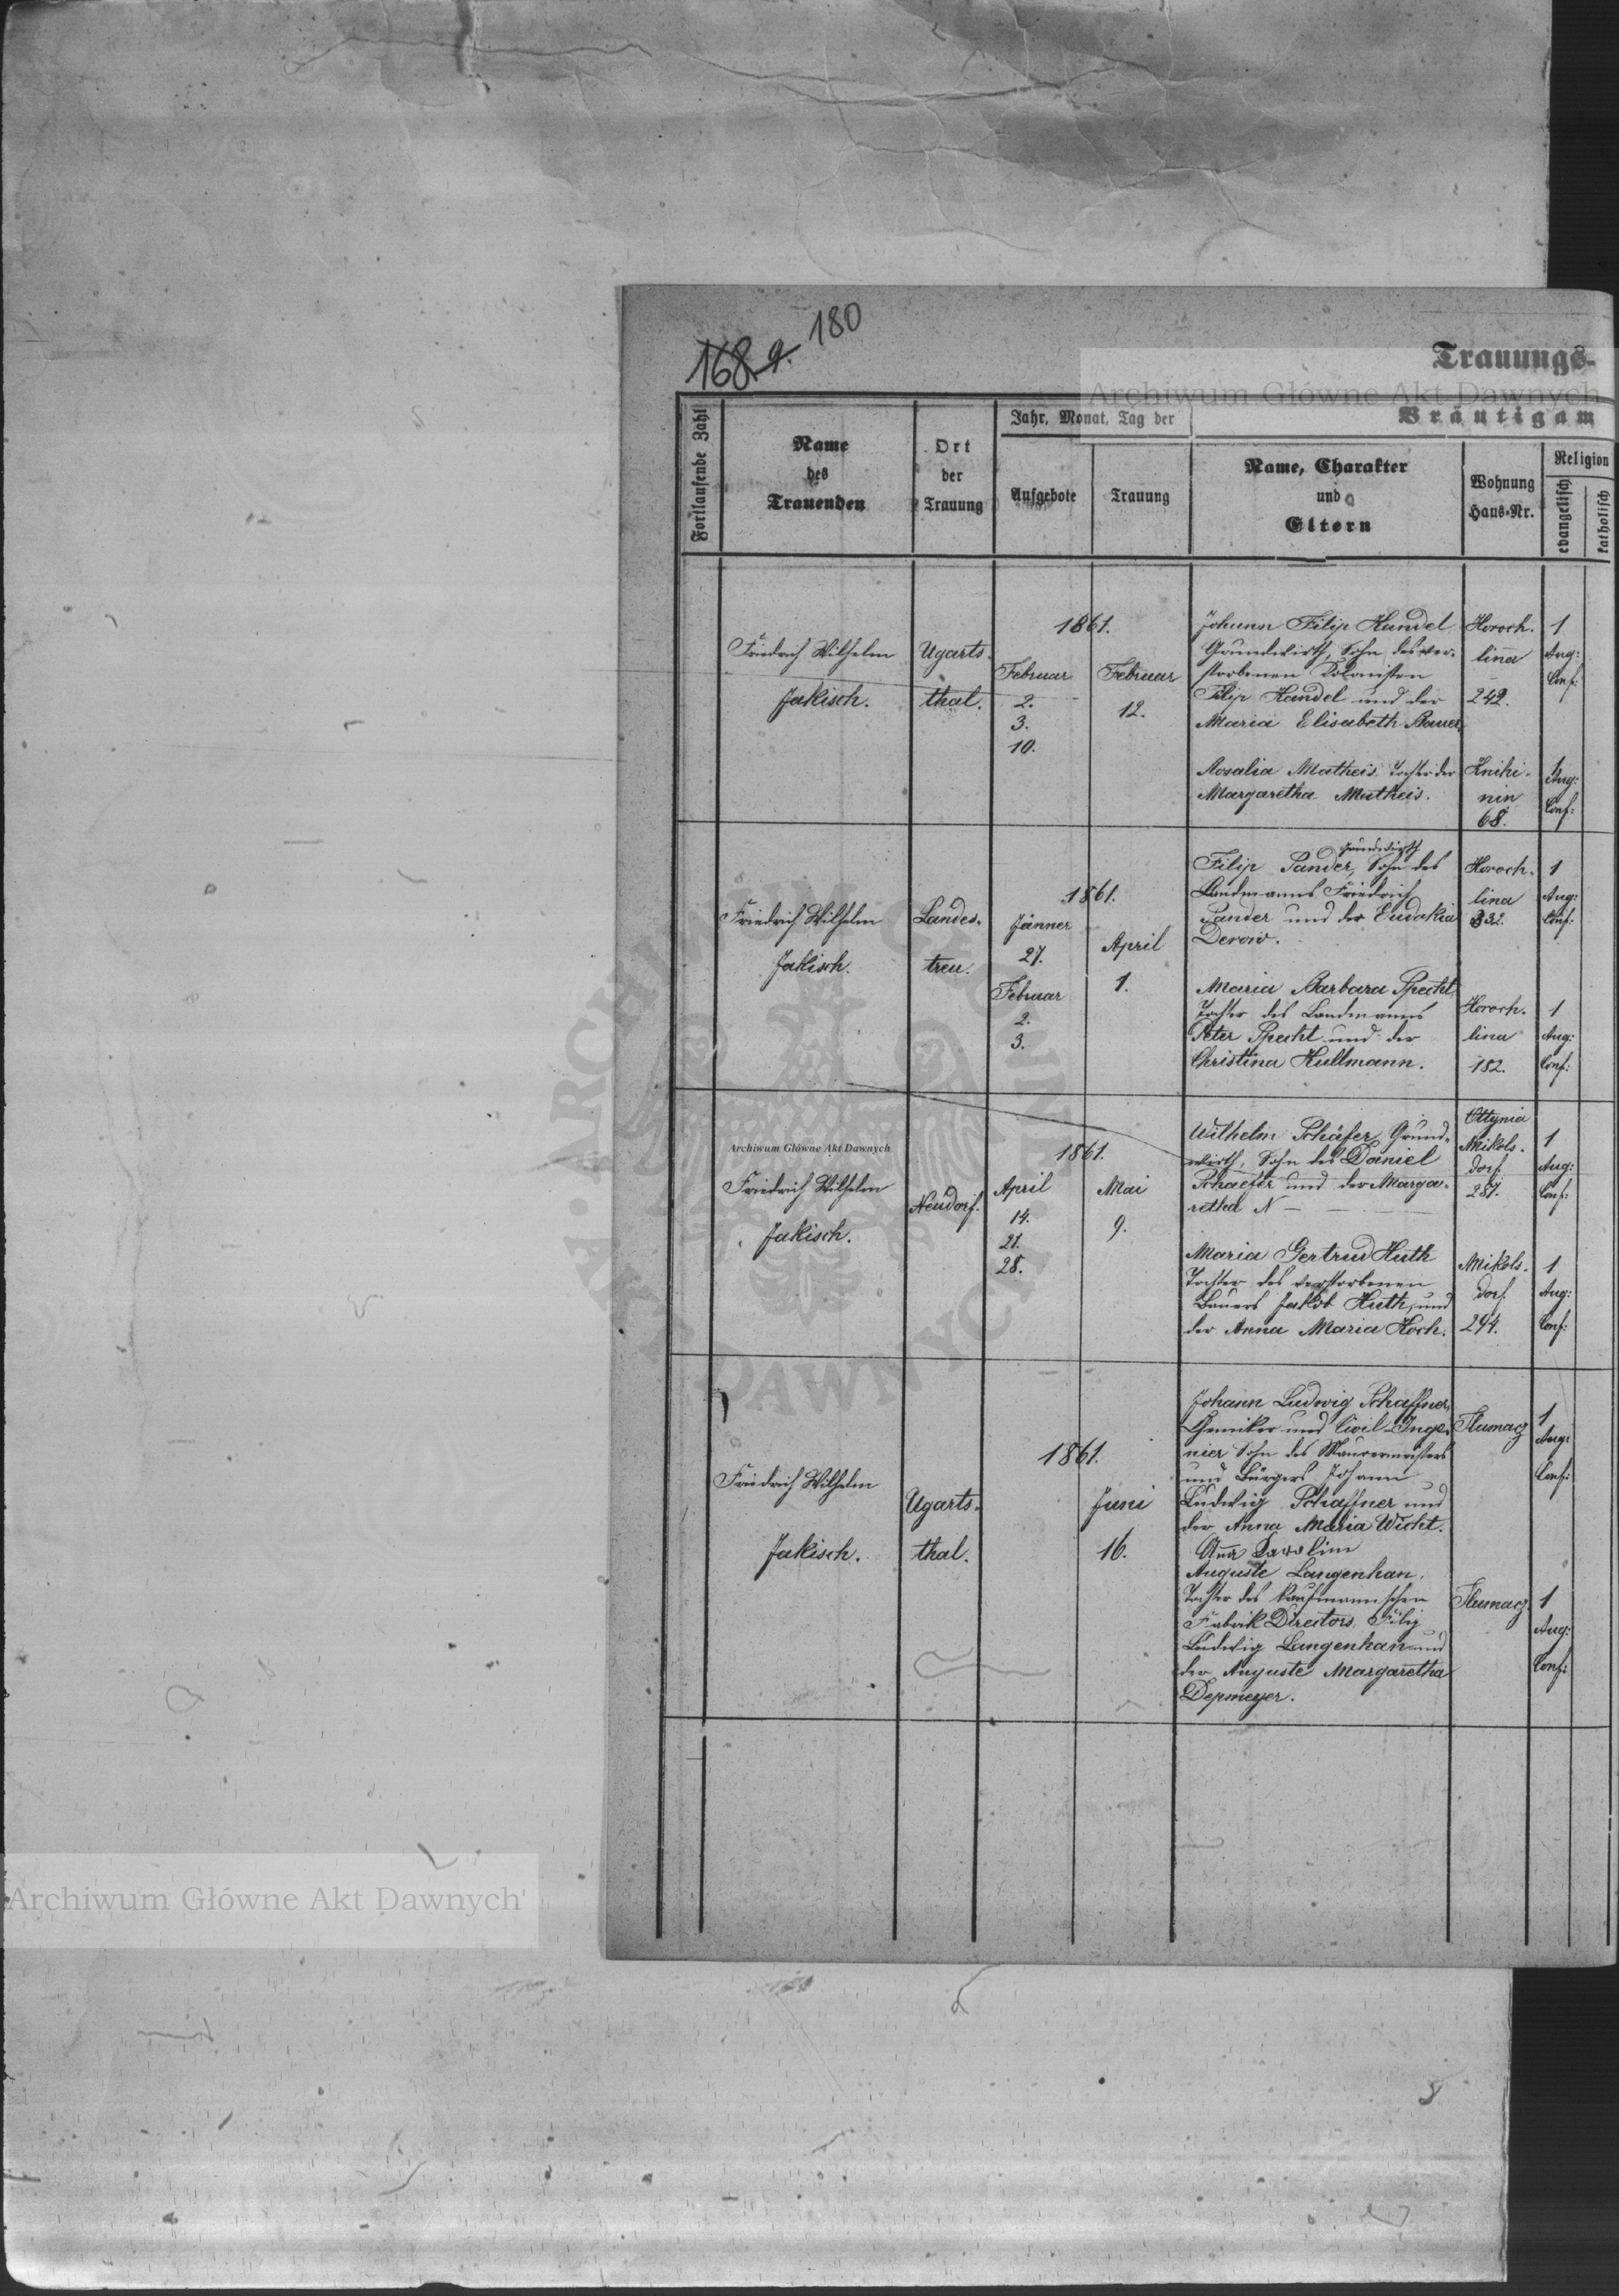 168. 9. 180
Trauungs-
Archiwum Główne Akt Dawnych
Bräutigam
Fortlaufende Zahl
Name
des
Trauenden
Ort
der
Trauung
Jahr, Monat, Tag der
Aufgebote
Trauung
Name, Charakter
und
Eltern
Wohnung
Haus-Nr.
Religion
evangelisch
katholisch
Friedrich Wilhelm
Jakisch.
Ugarts-
thal.
1861.
Februar
2.
3.
10.
Februar
12.
Johann Filip Handel
Grundwirth, Sohn des ver-
storbenen Kolonisten
Filip Handel und der
Maria Elisabeth Bauer,
Horoch-
lina
242.
1
Aug:
Conf:
Rosalia Matheis Tochter der
Margaretha Matheis.
Knihi-
nin
68.
1
Aug:
Conf:
Friedrich Wilhelm
Jakisch.
Landes-
treu.
1861.
Jänner
27.
Februar
2.
3.
April
1.
Grundwirth
Filip Pander, Sohn des
Landmanns Friedrich
Pander und der Eudokia
Derow.
Horoch-
lina
332.
1
Aug:
Conf:
Maria Barbara Specht,
Tochter des Landmanns
Peter Specht und der
Christina Kullmann.
Horoch-
lina
182.
1
Aug:
Conf:
Archiwum Główne Akt Dawnych
Friedrich Wilhelm
Jakisch.
Neudorf.
1861.
April
14.
21.
28.
Mai
9.
Wilhelm Schäfer, Grund-
wirth, Sohn des Daniel
Schaefer und der Marga-
retha N —
Ottynia
Mikols-
dorf
287.
1
Aug:
Conf:
Maria Gertrud Huth
Tochter des verstorbenen
Bauers Jakob Huth, und
der Anna Maria Koch.
Mikols-
dorf
294.
1
Aug:
Conf:
Friedrich Wilhelm
Jakisch.
Ugarts-
thal.
1861.
Juni
16.
Johann Ludwig Schaffner,
Chemiker und Civil-Inge-
nier Sohn des Maurermeisters
und Bürgers Johann
Ludwig Schaffner und
der Anna Maria Wicht.
Tlumacz
1
Aug:
Conf:
Anna Karolina
Auguste Langenhan,
Tochter des kaufmannischen
Fabrik Directors Filip
Ludwig Langenhan und
der Auguste Margaretha
Depmeyer.
Tlumacz
1
Aug:
Conf:
Archiwum Główne Akt Dawnych